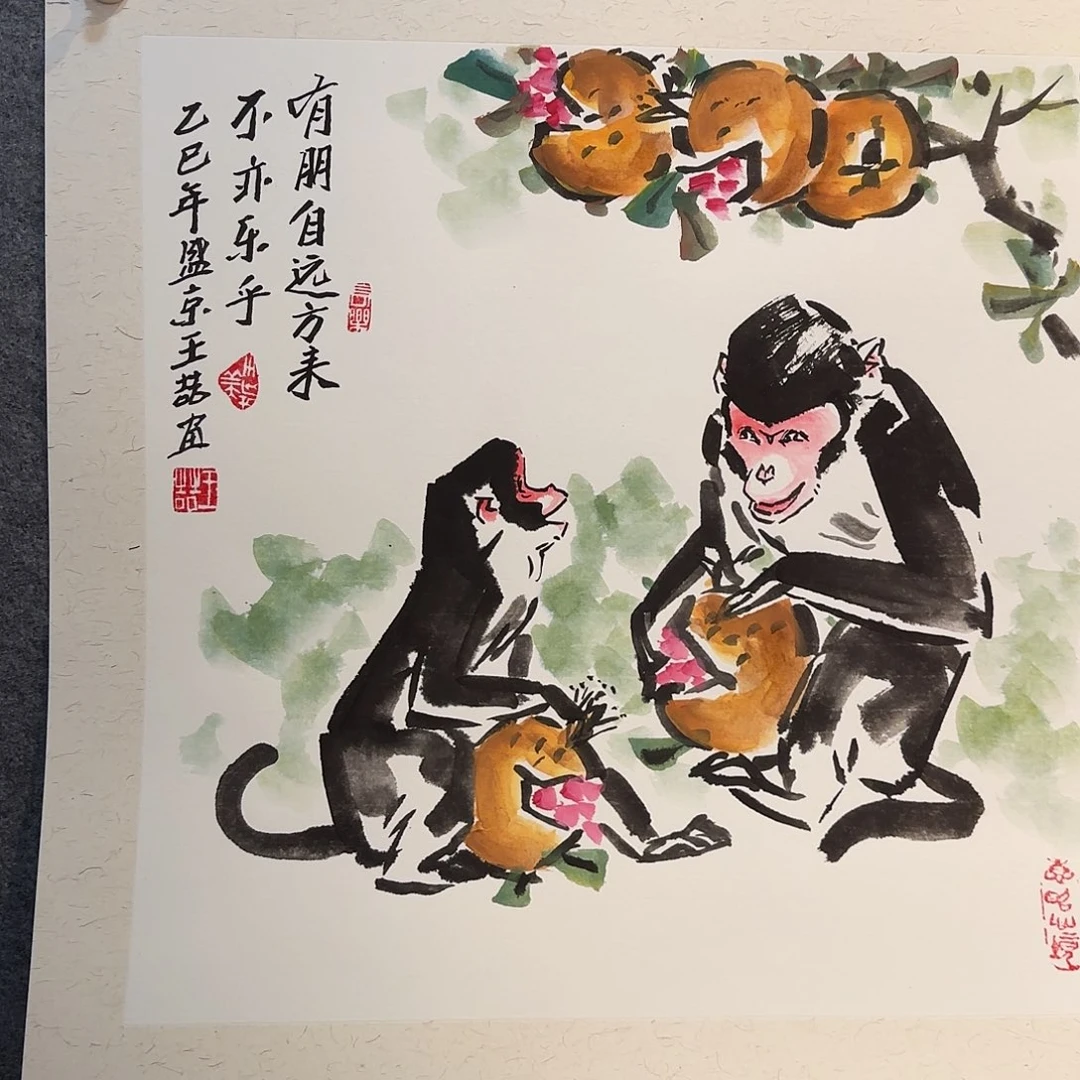 有朋自远方来
不亦乐乎
乙巳年盛京王喆画
王喆